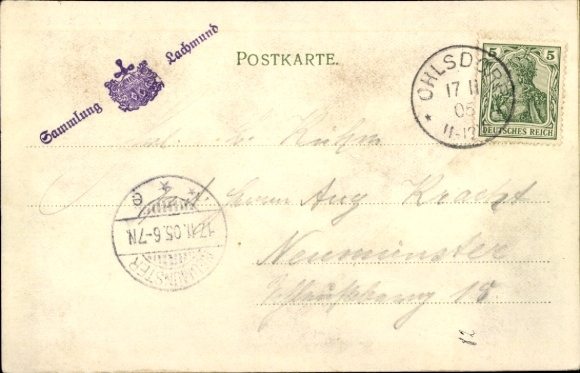 Sammlung Lachmund
POSTKARTE.
OHLSDORF
17 11
05
11-12
5 5
DEUTSCHES REICH
Kühn
Herrn Aug Kracht
Neumünster
15
NEUMÜNSTER
17.11.05.6-7N
12